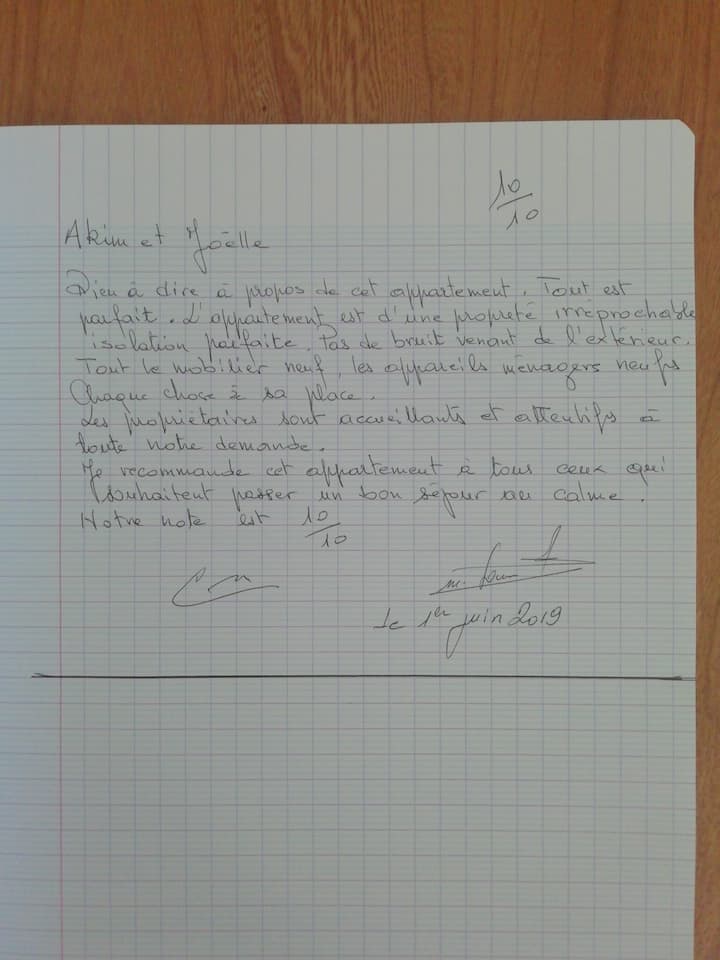 10/10
Akim et Joëlle
Rien à dire à propos de cet appartement. Tout est
parfait. L'appartement est d'une propreté irréprochable
isolation parfaite. Pas de bruit venant de l'extérieur.
Tout le mobilier neuf, les appareils ménagers neufs
Chaque chose à sa place.
Les propriétaires sont accueillants et attentifs à
toute notre demande.
Je recommande cet appartement à tous ceux qui
souhaitent passer un bon séjour au calme.
Notre note est 10/10
le 1er juin 2019